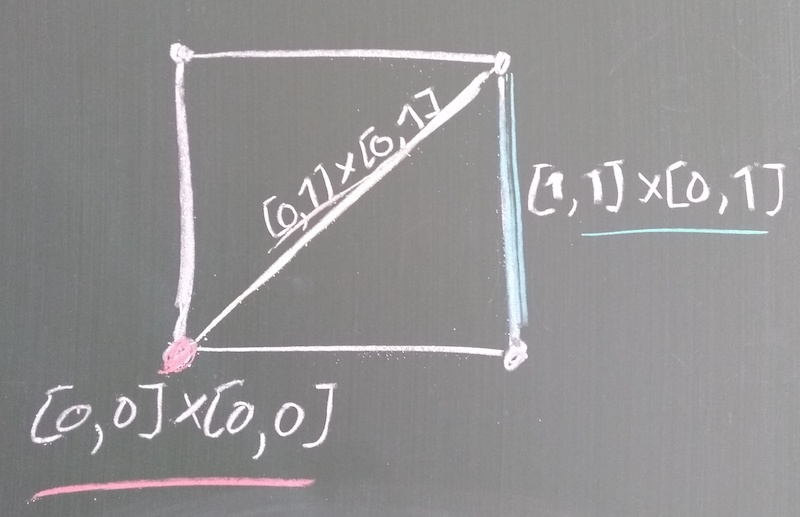 [0,1]×[0,1]
[1,1]×[0,1]
[0,0]×[0,0]